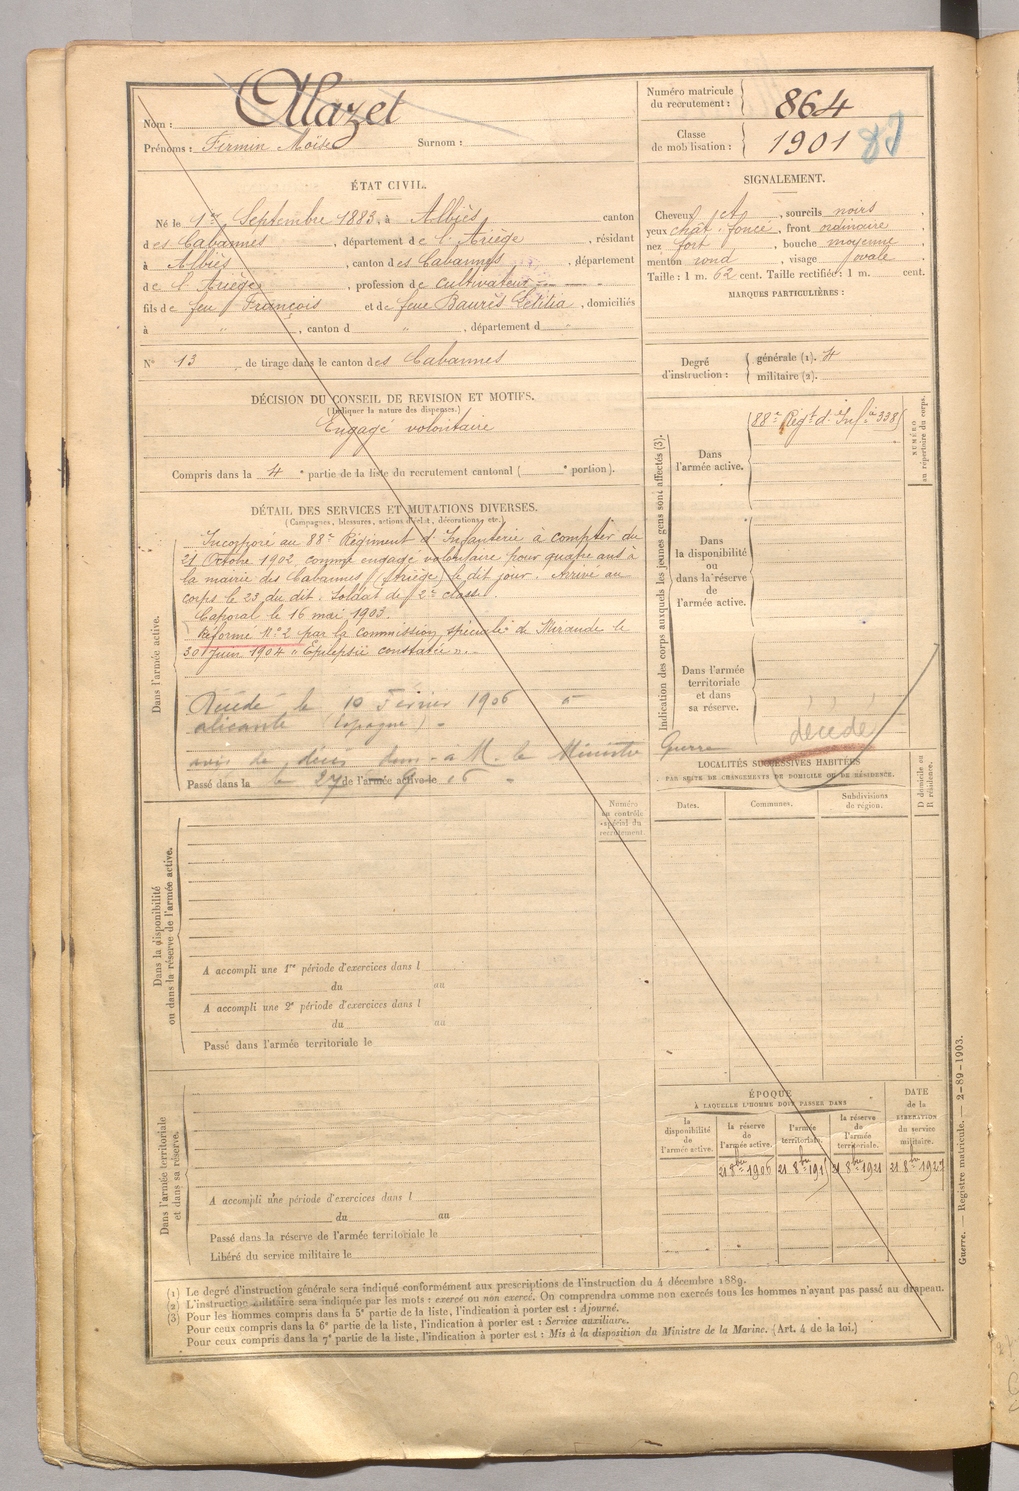 Nom : Alazet
Prénoms : Firmin Moïse Surnom :
Numéro matricule du recrutement : 864
Classe de mobilisation : 1901
ÉTAT CIVIL.
Né le 1er Septembre 1883, à Albiès canton
des Cabannes, département de l'Ariège, résidant
à Albiès, canton des Cabannes, département
de l'Ariège, profession de cultivateur
fils de feu François et de feue Baurès Létilia, domiciliés
à " , canton d " , département d "
N° 13 de tirage dans le canton des Cabannes
SIGNALEMENT.
Cheveux et, sourcils noirs,
yeux chât. foncé, front ordinaire
nez fort, bouche moyenne
menton rond, visage ovale
Taille : 1 m. 62 cent. Taille rectifiée : 1 m. cent.
MARQUES PARTICULIÈRES :
Degré d'instruction : générale (1). 4
militaire (2).
DÉCISION DU CONSEIL DE REVISION ET MOTIFS.
(Indiquer la nature des dispenses.)
Engagé volontaire
Compris dans la 4e partie de la liste du recrutement cantonal ( e portion).
DÉTAIL DES SERVICES ET MUTATIONS DIVERSES.
(Campagnes, blessures, actions d'éclat, décorations, etc.)
Dans l'armée active.
Incorporé au 88e Régiment d'Infanterie à compter du
21 Octobre 1902, comme engagé volontaire pour quatre ans à
la mairie des Cabannes (Ariège) le dit jour. Arrivé au
corps le 23 du dit. Soldat de 2e classe.
Caporal le 16 mai 1903.
Réformé N° 2 par la Commission spéciale de Mirande le
30 juin 1904 "Épilepsie constatée".
Décédé le 10 Février 1906 à
alicante (Espagne)
avis de décès à M. le Ministre
Passé dans la le 27 de l'armée active le 9 06
Indication des corps auxquels les jeunes gens sont affectés (3).
NUMÉRO au répertoire du corps.
Dans l'armée active.
88e Régt d'Inf. à 338
Dans la disponibilité ou dans la réserve de l'armée active.
Dans l'armée territoriale et dans sa réserve.
décédé
Guerre
LOCALITÉS SUCCESSIVES HABITÉES
PAR SUITE DE CHANGEMENTS DE DOMICILE OU DE RÉSIDENCE.
Dates. Communes. Subdivisions de région. D domicile ou R résidence.
Numéro au contrôle spécial du recrutement.
Dans la disponibilité ou dans la réserve de l'armée active.
A accompli une 1re période d'exercices dans l
du au
A accompli une 2e période d'exercices dans l
du au
Passé dans l'armée territoriale le
Dans l'armée territoriale et dans sa réserve.
A accompli une période d'exercices dans l
du au
Passé dans la réserve de l'armée territoriale le
Libéré du service militaire le
ÉPOQUE
À LAQUELLE L'HOMME DOIT PASSER DANS
la disponibilité de l'armée active. la réserve de l'armée active. l'armée territoriale. la réserve de l'armée territoriale. DATE de la LIBÉRATION du service militaire.
21 8bre 1906 21 8bre 191 21 8bre 1921 21 8bre 1927
(1) Le degré d'instruction générale sera indiqué conformément aux prescriptions de l'instruction du 4 décembre 1889.
(2) L'instruction militaire sera indiquée par les mots : exercé ou non exercé. On comprendra comme non exercés tous les hommes n'ayant pas passé au drapeau.
(3) Pour les hommes compris dans la 5e partie de la liste, l'indication à porter est : Ajourné.
Pour ceux compris dans la 6e partie de la liste, l'indication à porter est : Service auxiliaire.
Pour ceux compris dans la 7e partie de la liste, l'indication à porter est : Mis à la disposition du Ministre de la Marine. (Art. 4 de la loi.)
Guerre. — Registre matricule. — 2-89-1903.